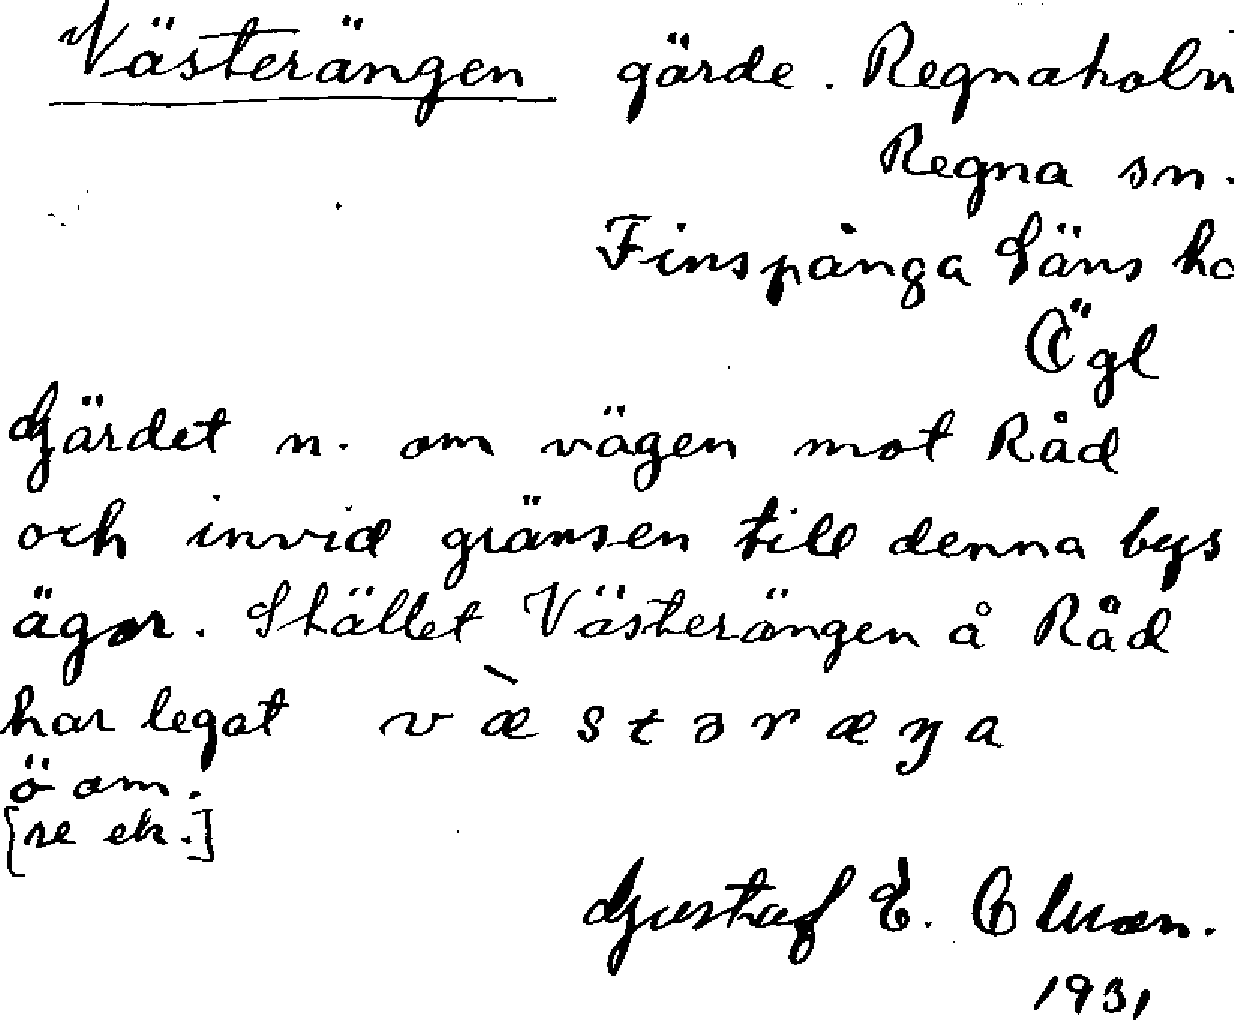 Västerängen gärde. Regnaholm
Regna sn.
Finspånga läns hd
Ögl
Gärdet n. om vägen mot Råd
och invid gränsen till denna bys
ägor. Stället Västerängen å Råd
har legat væ̀stəræŋa
ö om.
[se ek.]
Gustaf E.
1931